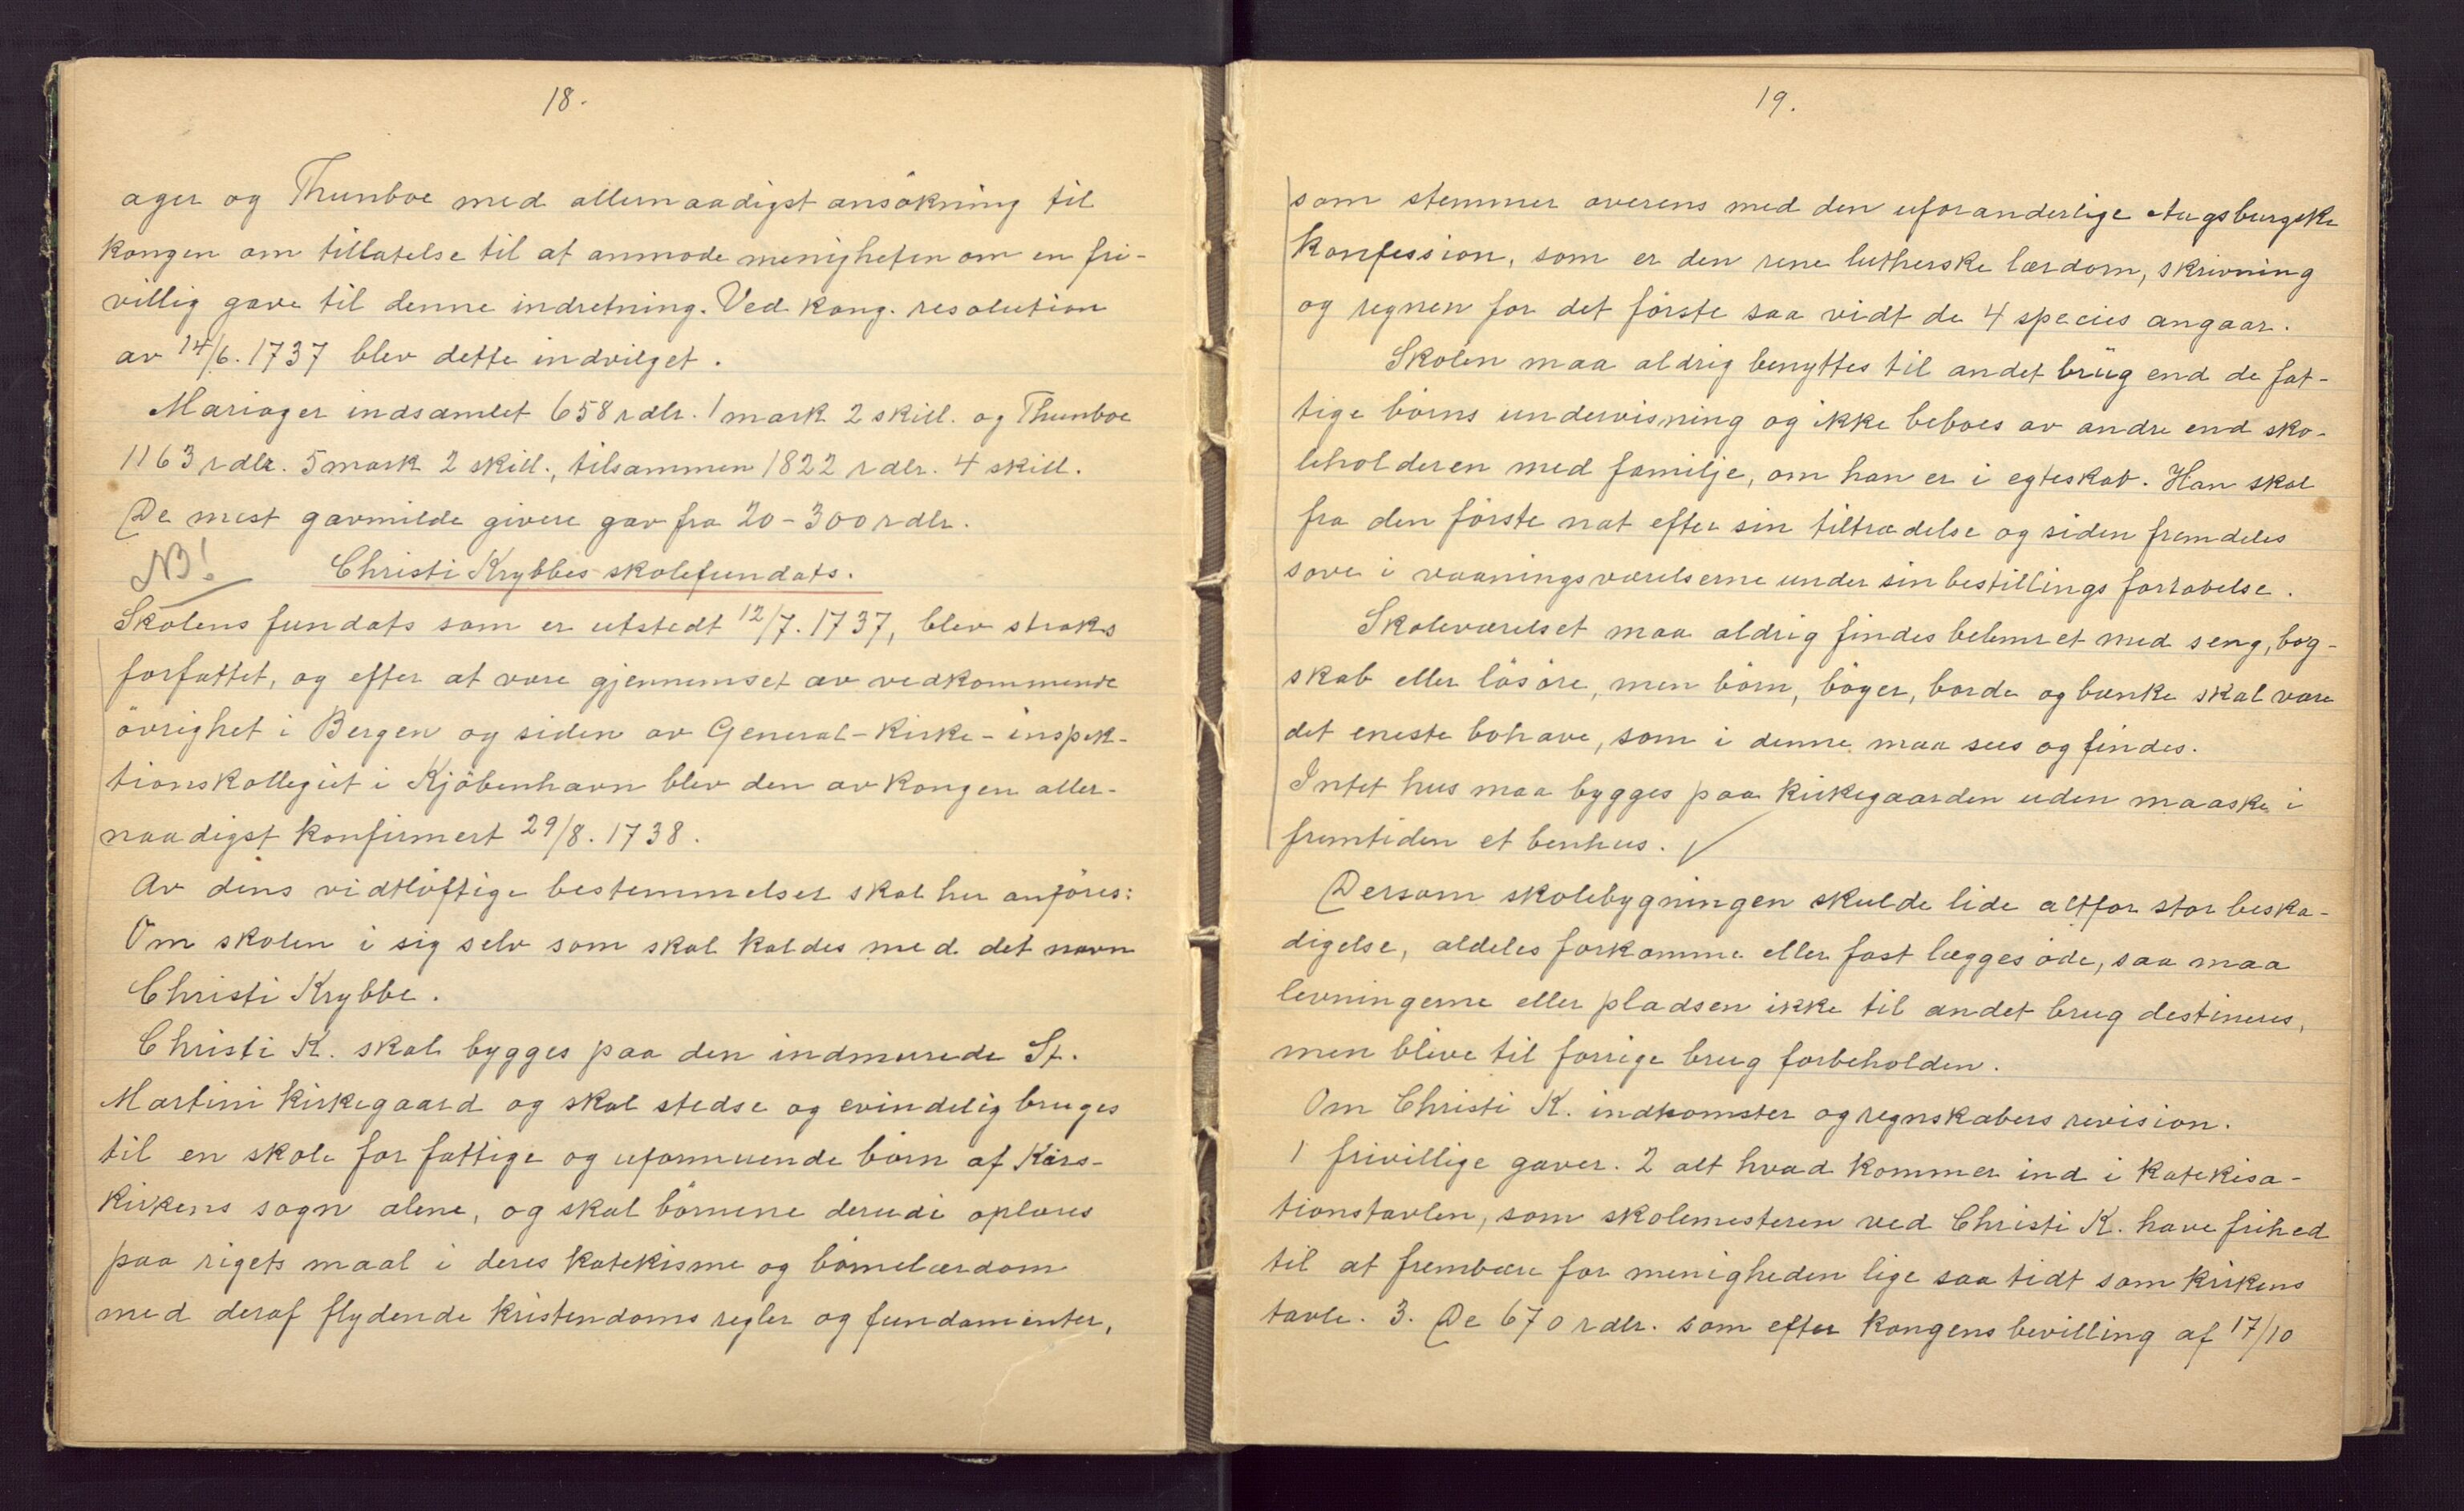 18.
ager og Thunboe med allernaadigst ansökning til
kongen om tillatelse til at anmode menigheten om en fri-
villig gave til denne indretning. Ved kong. resolution
av 14/6. 1737 blev dette indvilget.
Mariager indsamlet 658 rdlr. 1 mark 2 skill. og Thunboe
1163 rdlr. 5 mark 2 skill., tilsammen 1822 rdlr. 4 skill.
De mest gavmilde givere gav fra 20-300 rdlr.
NB! Christi Krybbes skolefundats.
Skolens fundats som er utstedt 12/7. 1737, blev straks
forfattet, og efter at være gjennemset av vedkommende
övrighet i Bergen og siden av General-Kirke-inspek-
tionskollegiet i Kjöbenhavn blev den av kongen aller-
naadigst konfirmert 29/8. 1738.
Av dens vidtlöftige bestemmelser skal her anföres:
Om skolen i sig selv som skal kaldes med det navn
Christi Krybbe.
Christi K. skal bygges paa den indmurede St.
Martini kirkegaard og skal stedse og evindelig bruges
til en skole for fattige og uformuende börn af Kors-
kirkens sogn alene, og skal börnene derudi oplæres
paa rigets maal i deres katekisme og börnelærdom
med deraf flydende kristendoms regler og fundamenter,
19.
som stemmer overens med den uforanderlige Augsburgske
Konfession, som er den rene lutherske lærdom, skrivning
og regnen for det förste saa vidt de 4 species angaar.
Skolen maa aldrig benyttes til andet brug end de fat-
tige börns undervisning og ikke beboes av andre end sko-
leholderen med familje, om han er i egteskab. Han skal
fra den förste nat efter sin tiltrædelse og siden fremdeles
sove i vaaningsværelserne under sin bestillings fortabelse.
Skoleværelset maa aldrig findes belemret med seng, bog-
skab eller lösöre, men börn, böger, borde og bænke skal være
det eneste bohave, som i denne maa sees og findes.
Intet hus maa bygges paa kirkegaarden uden maaske i
fremtiden et benhus. ✓
Dersom skolebygningen skulde lide altfor stor beska-
digelse, aldeles forkomme eller fast lægges öde, saa maa
levningerne eller pladsen ikke til andet brug destineres,
men blive til forrige brug forbeholden.
Om Christi K. indkomster og regnskabers revision.
1 frivillige gaver. 2 alt hvad kommer ind i katekisa-
tionstavlen, som skolemesteren ved Christi K. have frihed
til at frembære for menigheden lige saa tidt som kirkens
tavle. 3. De 670 rdlr. som efter kongens bevilling af 17/10